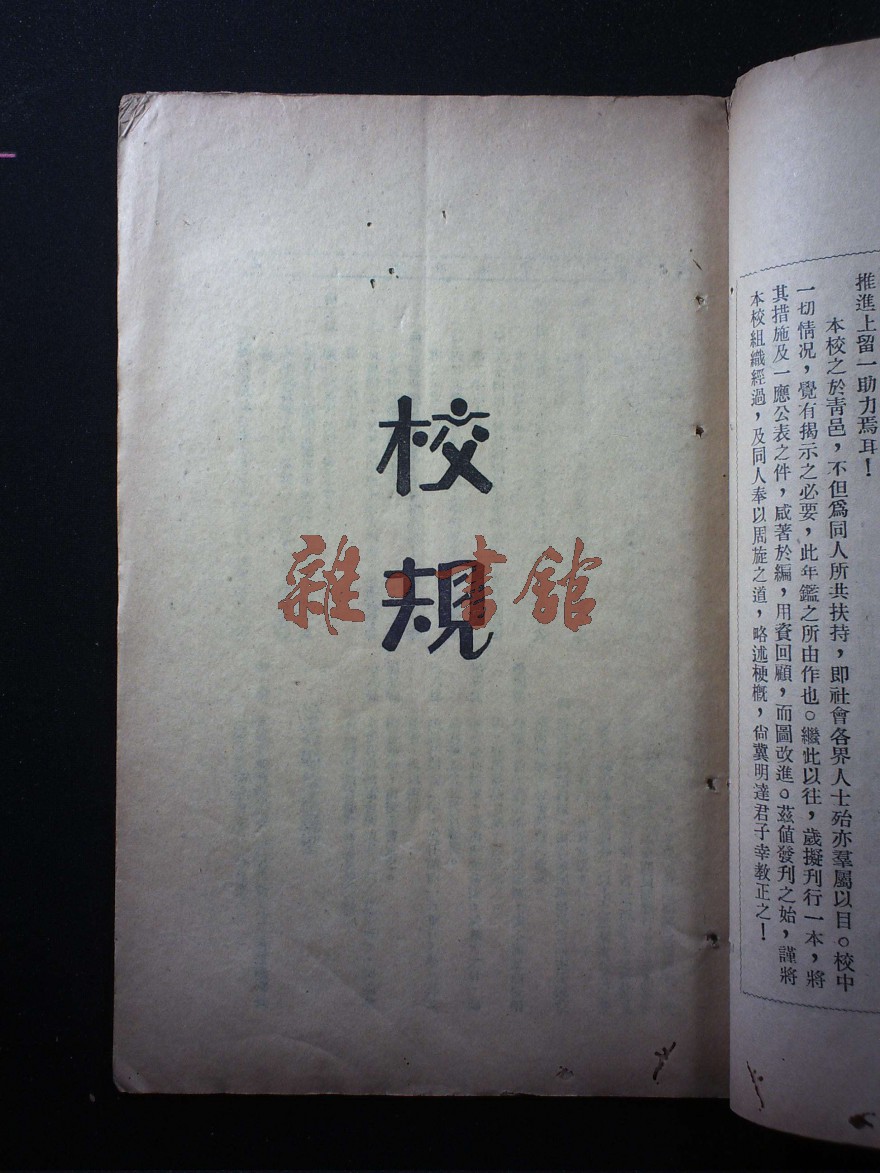 推進上留一助力焉耳！
本校之於靑邑，不但爲同人所共扶持，即社會各界人士殆亦羣屬以目。校中
一切情况，覺有揭示之必要，此年鑑之所由作也。繼此以往，歲擬刋行一本，將
其措施及一應公表之件，咸著於編，用資回顧，而圖改進。茲值發刋之始，謹將
本校組織經過，及同人奉以周旋之道，略述梗槪，尙冀明達君子幸敎正之！
校
規
雜·書館